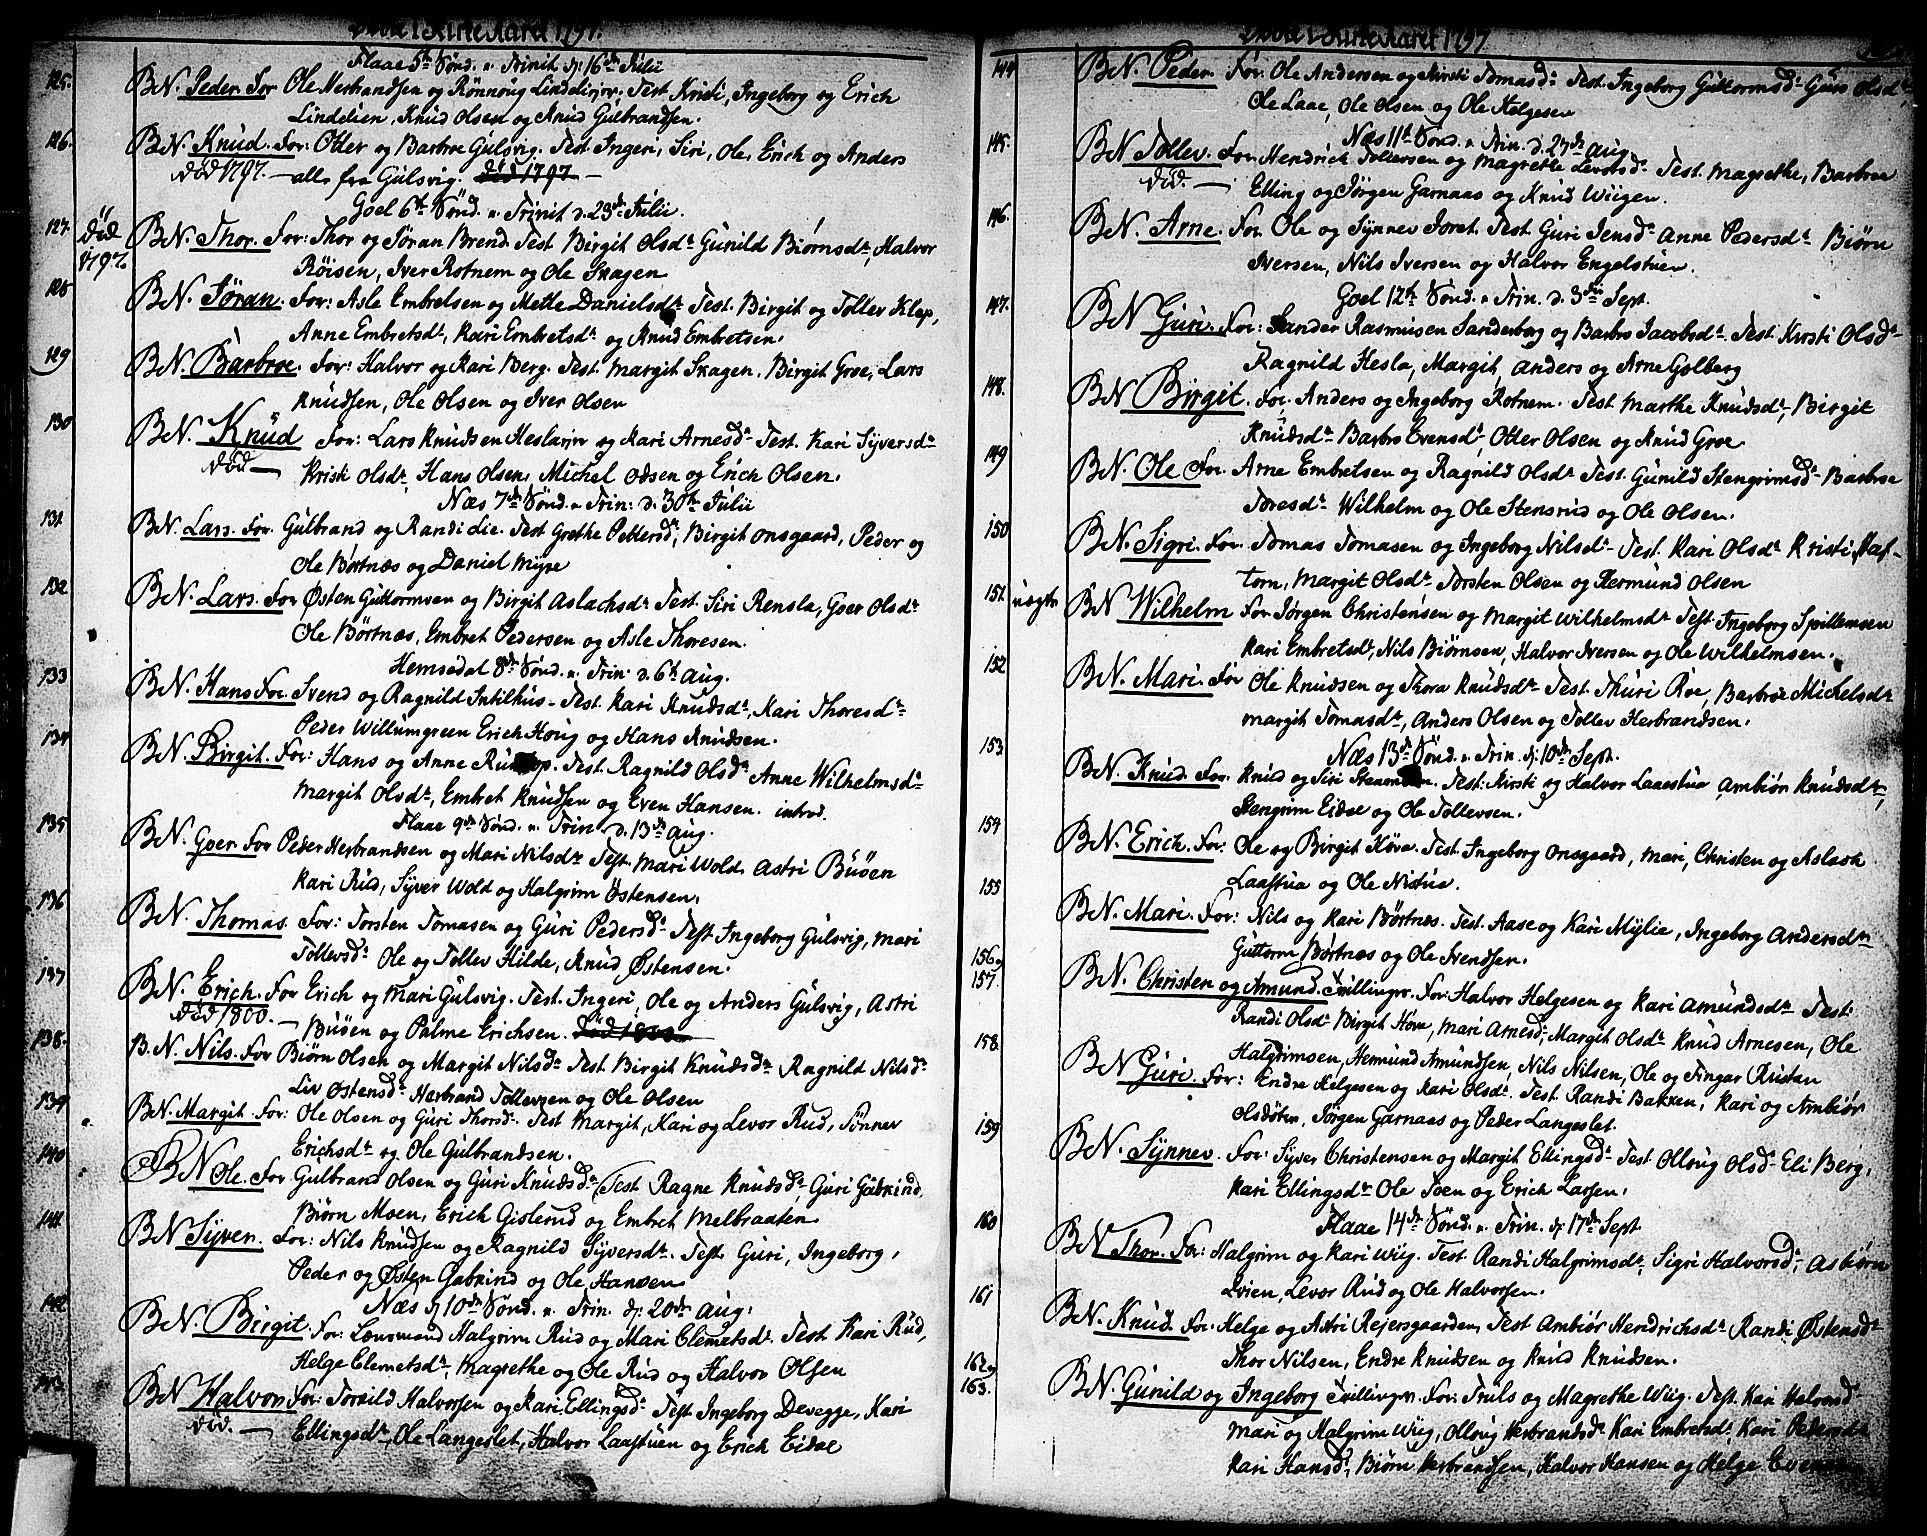 Døbte i Kirke Aaret 1797.
Flaae 5te Sönd. n. Trinit d: 16de Julii
125. BN. Peder For Ole Herbrandsen og Rönnoug Lindelien. Test Kristi, Ingeborg og Erich
Lindelien, Knud Olsen og Knud Gulbrandsen.
126. BN. Knud. For: Otter og Barbroe Gulsvig. Test. Ingeri, Siri, Ole, Erich og Anders
död 1797. — alle fra Gulsvig. död 1797 —
Goel 6te Sönd. n. Trinit d. 23de Julii.
127. död 1797. BN. Thor. For: Thor og Jöran Brend. Test Birgit Olsdr Gunild Biørnsdr, Halvor
Röisen, Iver Rotnem og Ole Skagen
128 BN. Jöran. For: Asle Embretsen og Mette Danielsdr Test. Birgit og Tollev Klep,
Anne Embretsdr, Kari Embretsdr og Knud Embretsen.
129 BN. Barbroe. For: Halvor og Kari Berg. Test. Margit Skagen, Birgit Groe, Lars
Knudsen, Ole Olsen og Iver Olsen
130 BN. Knud For: Lars Knudsen og Kari Arnesdr Test. Kari Syversdr
död — Kristi Olsdr, Hans Olsen, Michel Olsen og Erich Olsen.
Næs 7de Sönd. n. Trin: d. 30te Julii
131 BN. Lars. For. Gulbrand og Randi Lie. Test Grethe Pettersdr, Birgit Onsgaard, Peder og
Ole Børtnæs og Daniel Myre
132 BN. Lars. For Østen Guttormsen og Birgit Aslachsdr Test. Siri Rensla, Goer Olsdr
Ole Börtnæs, Embret Pedersen og Asle Thoresen.
Hemsedal 8de Sönd. n. Trin. d. 6te Aug.
133 BN. Hans For. Svend og Ragnild Intilhus. Test. Kari Knudsdr, Kari Thoresdr
Peder Willumgreen Erich Houg og Hans Knudsen.
134 BN. Birgit. For: Hans og Anne Test. Ragnild Olsdr Anne Wilhelmsdr
Margit Olsdr, Embret Knudsen og Even Hansen. introd.
Flaae 9de Sönd. n. Trin. d. 13de Aug.
135 BN. Goer. For Peder Herbrandsen og Mari Nilsdr Test. Mari Wold, Astri Buöen
Kari Rud, Syver Wold og Halgrim Östensen.
136 BN. Thomas. For: Torsten Tomasen og Guri Pedersdr Test. Ingeborg Gulsvig, Mari
Tollevsdr Ole og Tollev Hilde, Knud Østensen.
137 BN. Erich. For Erich og Mari Gulsvig. Test. Ingeri, Ole og Anders Gulsvig, Astri
död 1800. — Buöen og Palme Erichsen. död 1800
138. B.N. Nils. For Biørn Olsen og Margit Nilsdr Test Birgit Knudsdr Ragnild Nilsdr
Liv Østensdr Herbrand Tollevsen og Ole Olsen
139 BN. Margit For: Ole Olsen og Guri Thorsdr Test Margit, Kari og Levor Rud, Synnev
Erichsdr og Ole Gulbrandsen.
140 BN Ole. For Gulbrand Olsen og Guri Knudsdr Test Ragne Knudsdr Guri Gubrind
Biørn Moen, Erich Gislerud og Embret Melbraaten
141 BN Syver. For: Nils Knudsen og Ragnild Syversdr. Test. Guri, Ingeborg,
Peder og Østen Gubrind og Ole Hansen
Næs d 10de Sönd. n. Trin. d: 20de Aug:
142 BN. Birgit. For: Lensmand Halgrim Rud og Mari Clemetsdr Test Kari Rud,
Helge Clemetsdr, Magrethe og Ole Rud og Halvor Olsen
143. BN Halvor For: Torkild Halvorsen og Kari Ellingsdr Test Ingeborg Devegge, Kari
död. — Ellingsdr, Ole Langeslet, Halvor Laastuen og Erich Eidal
Døbte i Kirke Aaret 1797
144 BN. Peder. For. Ole Andersen og Kirsti Tomasdr Test. Ingeborg Guttormsdr Guro Olsdr,
Ole Laae, Ole Olsen og Ole Helgesen
Næs 11te Sönd. n. Trin. d. 27de Aug.
145. BN Tollev. For Hendrich Tollevsen og Magrethe Levorsdr Test. Magrethe, Barbroe
död. — Elling og Jørgen Garnaas og Knud Wiigen.
146. BN. Arne. For. Ole og Synnev Joret. Test. Guri Jensdr Anne Pedersdr Biørn
Iversen, Nils Iversen og Halvor Engelstuen.
Goel 12te Sönd. n. Trin. d. 3die Sept.
147. BN Guri. For: Sander Rasmusen Sanderborg og Barbro Jacobsdr Test. Kirsti Olsdr
Ragnild Hesla, Margit, Anders og Arne Golberg
148. BN Birgit. For. Anders og Ingeborg Rotnem. Test Marthe Knudsdr Birgit
Knudsdr Barbro Evensdr Otter Olsen og Knud Groe
149 BN. Ole For. Arne Embretsen og Ragnild Olsdr Test. Gunild Stengrimsdr Barbroe
Toresdr Wilhelm og Ole Stensrud og Ole Olsen.
150 BN. Sigri. For. Tomas Tomasen og Ingeborg Nilsdr Test. Kari Olsdr Kristi Haf-
torn, Margit Olsdr Torsten Olsen og Hermund Olsen
151. uægte BN Wilhelm For Jørgen Christensen og Margit Wilhelmsdr Test Ingeborg Spillemsen
Kari Embretsdr, Nils Biørnsen, Halvor Iversen og Ole Wilhelmsen.
152 BN. Mari. For Ole Knudsen og Thora Knudsdr Test. Thuri Roe, Barbroe Michelsdr
Margit Tomasdr, Anders Olsen og Tollev Herbrandsen.
Næs 13de Sönd. n. Trin. d. 10de Sept.
153. BN. Knud. For. Knud og Siri Test: Kirsti og Halvor Laastua Ambiör Knudsdr,
Stengrim Eidal og Ole Tollevsen.
154 BN. Erich. For. Ole og Birgit Höva. Test. Ingeborg Onsgaard, Mari, Christen og Aslach
Laastua og Ole Nistua.
155 BN. Mari. For: Nils og Kari Börtnæs. Test. Aase og Kari Mylie, Ingeborg Andersdr
Guttorm Börtnæs og Ole Svendsen.
156 og 157. BN. Christen og Amund. Tvillinger. For: Halvor Helgesen og Kari Amundsdr Test:
Randi Olsdr Birgit Höva, Mari Arnesdr, Margit Olsdr Knud Arnesen, Ole
Halgrimsen, Hemund Amundsen, Nils Nilsen, Ole og Fingar Kristan
158. BN Guri. For: Endre Helgesen og Kari Olsdr. Test. Randi Bakken, Kari og Ambiör
Olsdötre, Jørgen Garnaas og Peder Langeslet.
159 BN. Synnev. For: Syver Christensen og Margit Ellingsdr Test. Olloug Olsdr Eli Berg,
Kari Ellingsdr Ole Toen og Erich Larsen.
Flaae 14de Sönd. n. Trin. d. 17de Sept.
160 BN Thor. For: Halgrim og Kari Wiig. Test. Randi Halgrimsdr, Sigri Halvorsdr, Asbiörn
Lvien, Levor Rud og Ole Halvorsen.
161 BN. Knud. For. Helge og Astri Rejersgaarden, Test Ambiør Hendrichsdr Randi Østensdr
Thor Nilsen, Endre Knudsen og Knud Knudsen.
162 og 163. BN. Gunild og Ingeborg Tvillinger. For: Truls og Magrethe Wiig. Test. Kari Halvorsd
Mari og Halgrim Wiig, Olloug Herbrandsdr Kari Embretsdr, Kari Pedersdr
Kari Hansdr, Biørn Herbrandsen, Halvor Hansen og Helge Evensen